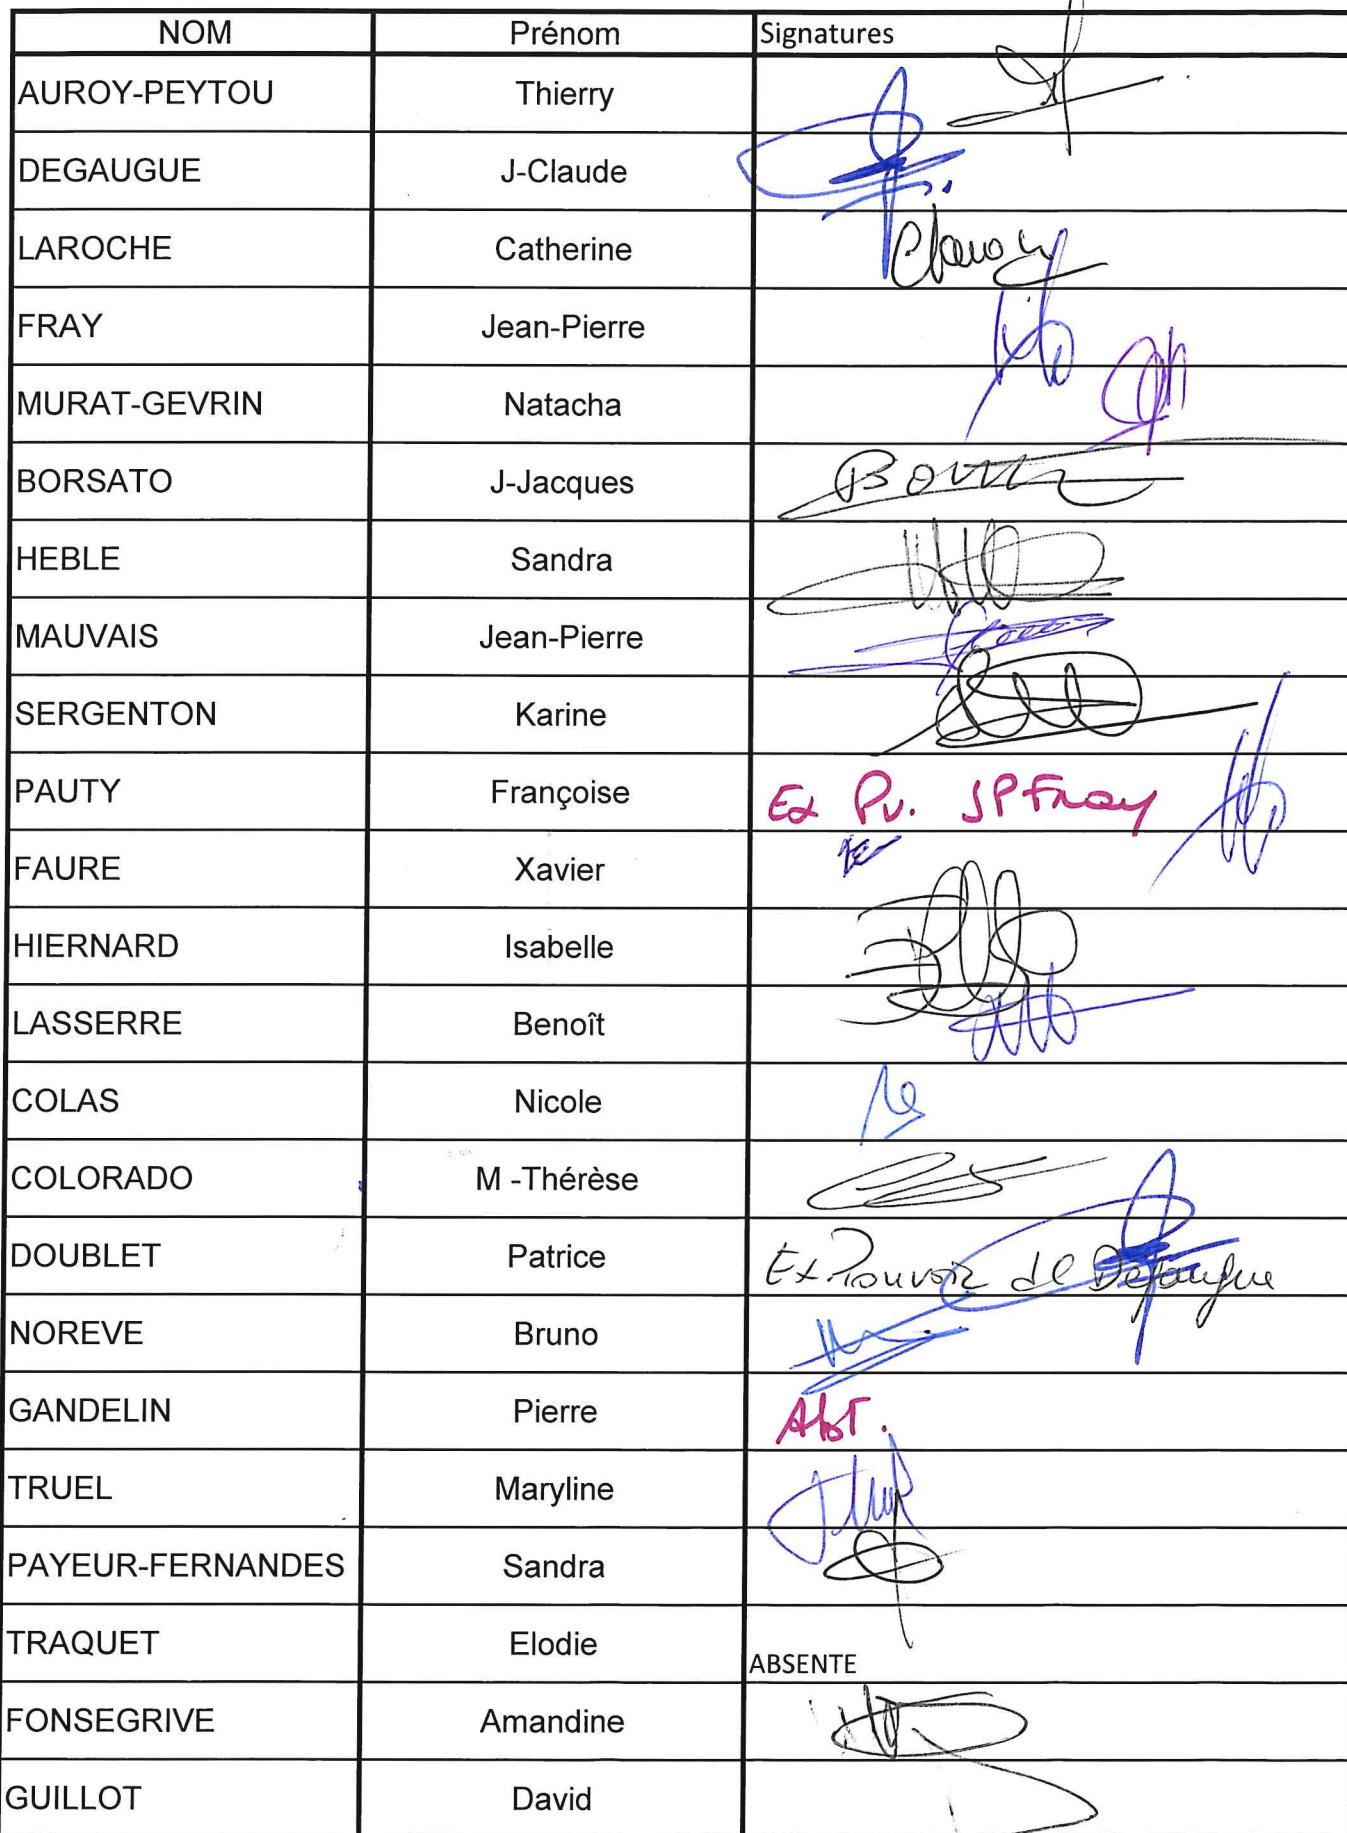 NOM Prénom Signatures
AUROY-PEYTOU Thierry
DEGAUGUE J-Claude
LAROCHE Catherine
FRAY Jean-Pierre
MURAT-GEVRIN Natacha
BORSATO J-Jacques
HEBLE Sandra
MAUVAIS Jean-Pierre
SERGENTON Karine
PAUTY Françoise Ex Pv. JP Fray
FAURE Xavier
HIERNARD Isabelle
LASSERRE Benoît
COLAS Nicole
COLORADO M -Thérèse
DOUBLET Patrice Ex Pouvoir de Degaugue
NOREVE Bruno
GANDELIN Pierre Abst.
TRUEL Maryline
PAYEUR-FERNANDES Sandra
TRAQUET Elodie ABSENTE
FONSEGRIVE Amandine
GUILLOT David